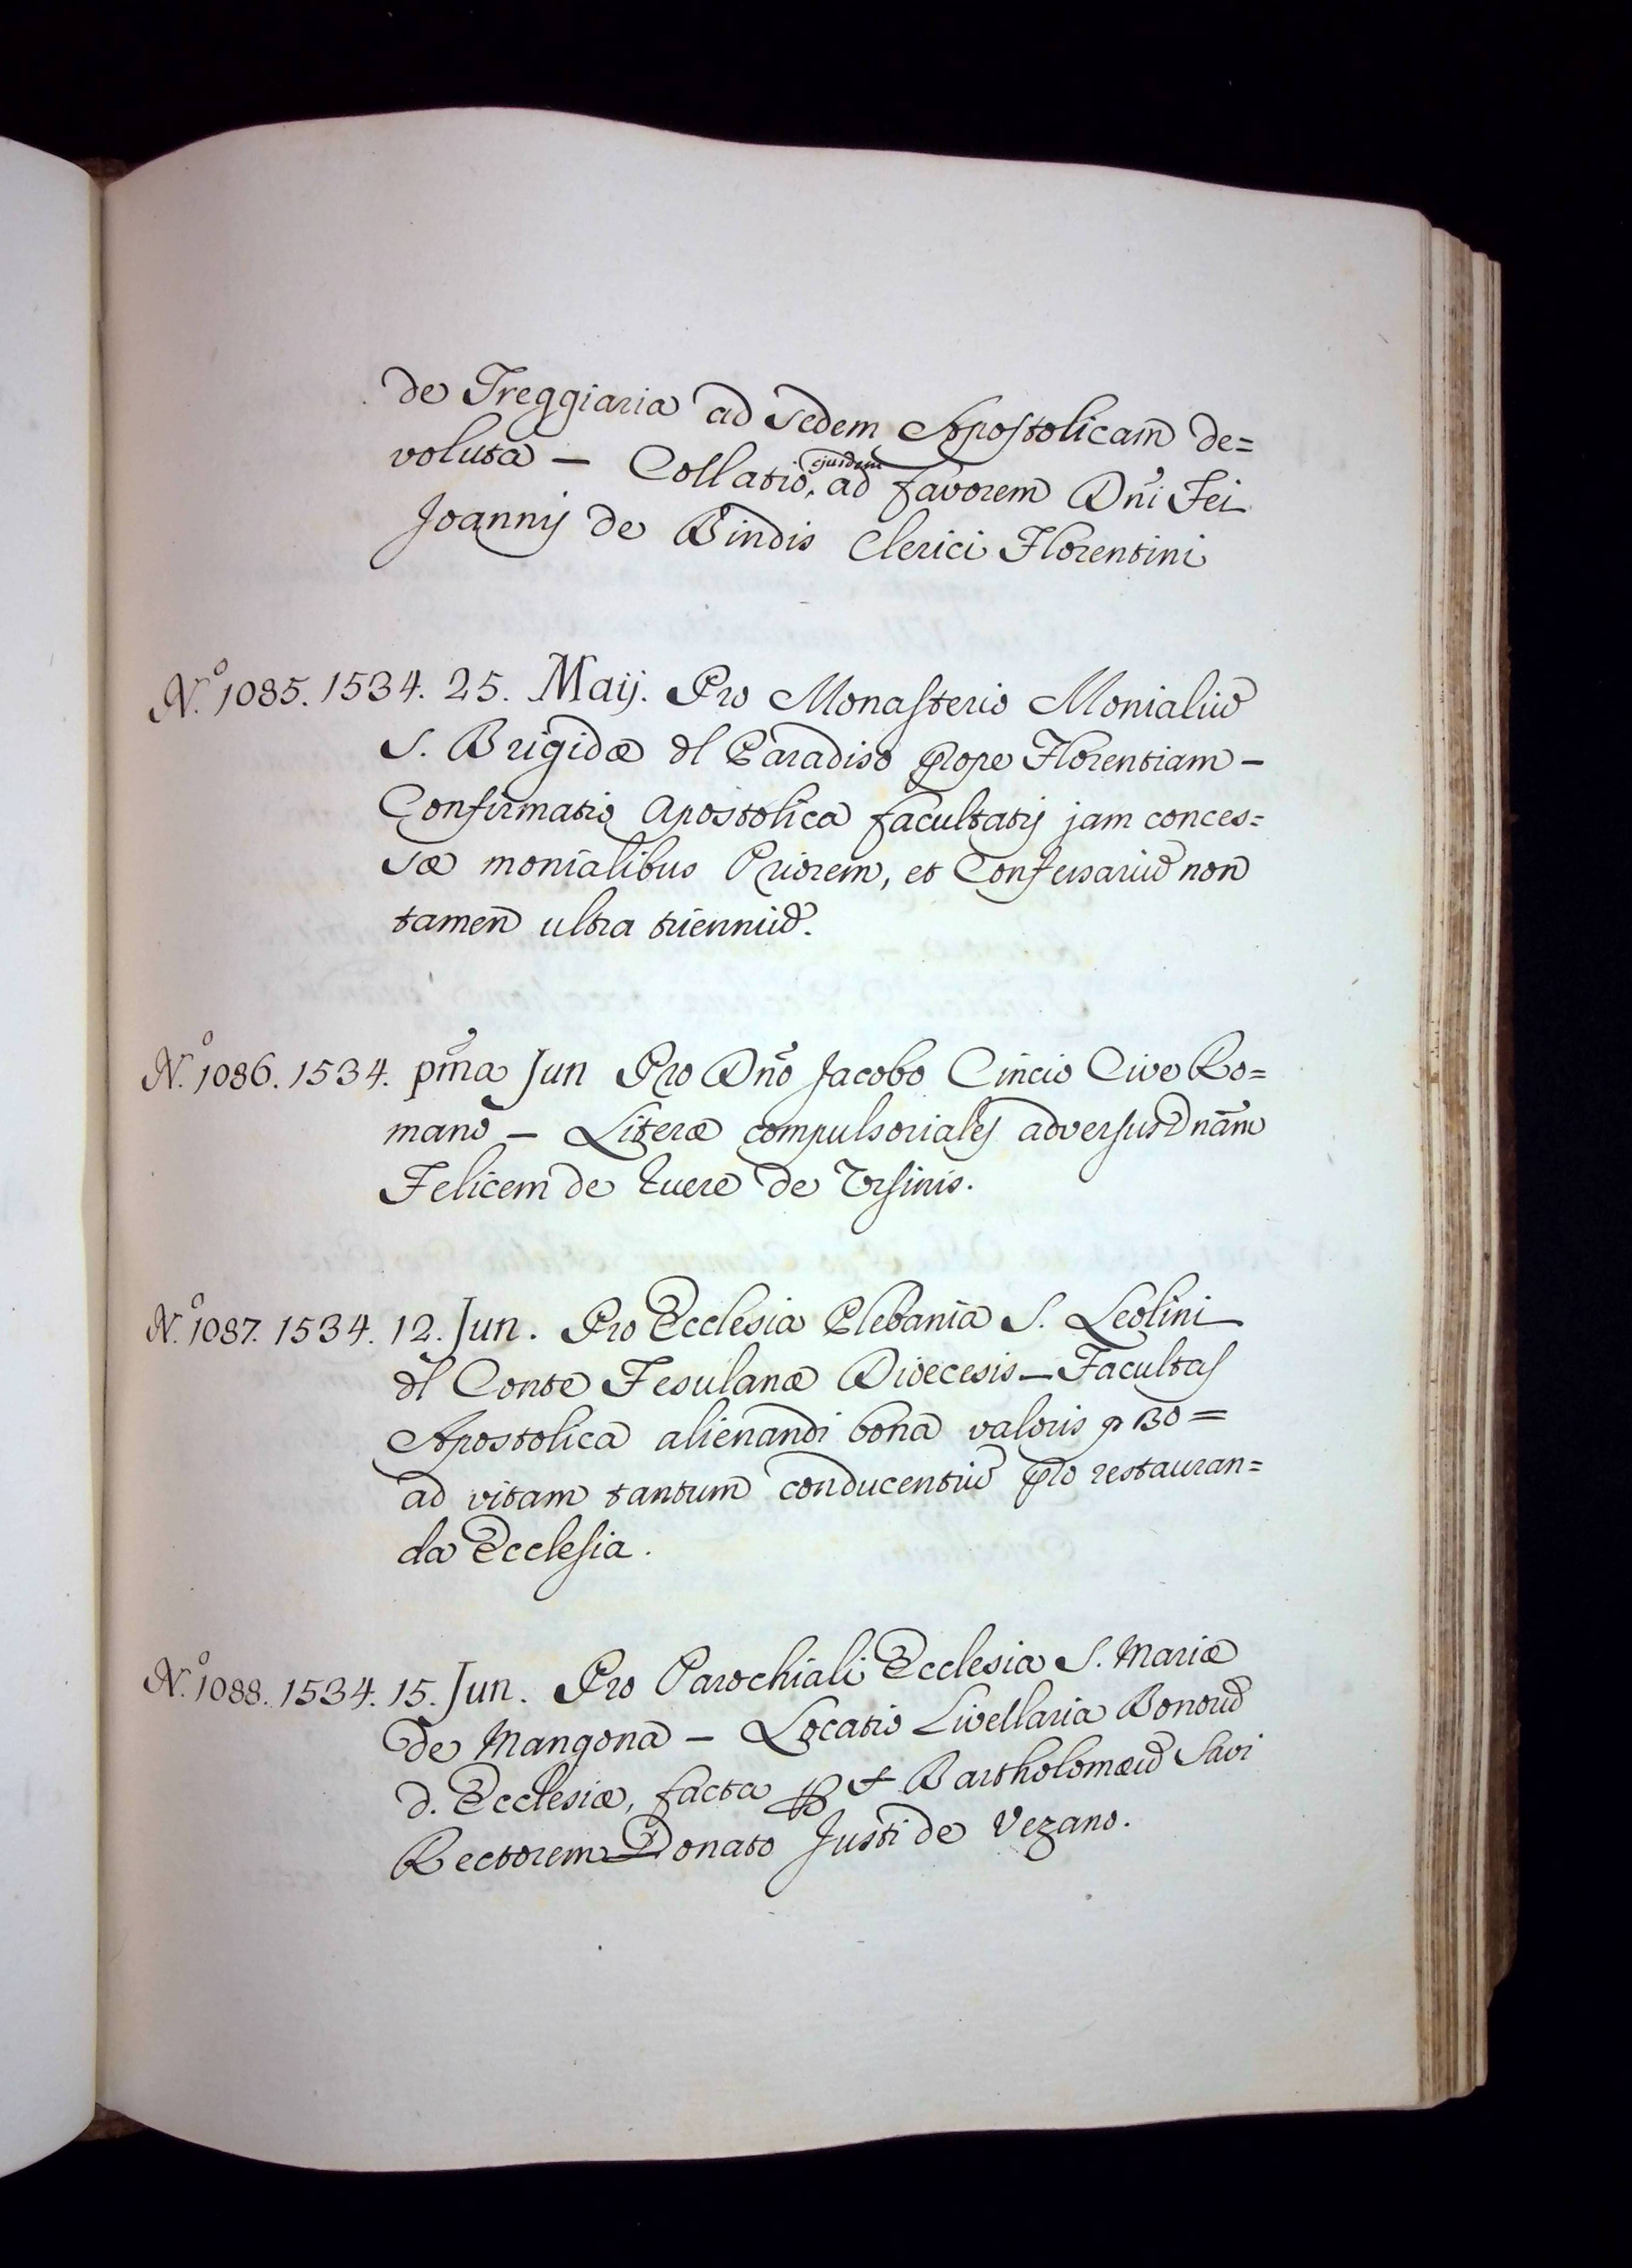 de Treggiaria ad Sedem Apostolicam de=
voluta — Collatio, ejusdem ad favorem Dñi Fei
Joannis de Bindis Clerici Florentini
N.º 1085. 1534. 25. Maij. Pro Monasterio Monialiũ
S. Brigidæ dl Paradiso prope Florentiam —
Confirmatio Apostolica facultatis jam conces=
sæ monialibus Priorem, et Confessariũ non
tamen ultra trienniũ.
N.º 1086. 1534. pm̃a Jun Pro Dño Jacobo Cincio Cive Ro=
mano — Literæ compulsoriales adversus Dnãm
Felicem de Ruere de Ursinis.
N.º 1087. 1534. 12. Jun. Pro Ecclesia Plebania S. Leolini
dl Conte Fesulanæ Dioecesis — Facultas
Apostolica alienandi bona valoris p 130 =
ad vitam tantum conducentiũ pro restauran=
da Ecclesia.
N.º 1088. 1534. 15. Jun. Pro Parochiali Ecclesia S. Mariæ
de Mangona — Locatio Livellaria Bonorũ
d. Ecclesiæ, facta Bartholomæũ Savi
Rectorem Donato Justi de Vezano.